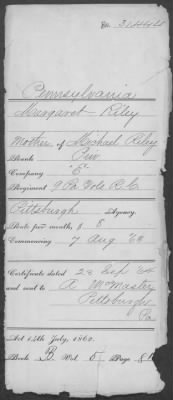 No. 31444
Pennsylvania
Margaret Riley
Mother of Michael Riley
Rank Priv.
Company "E"
Regiment 9 Pa Vols R.C.
Pittsburgh Agency.
Rate per month, $ 8
Commencing 7 Aug '63
Certificate dated 23 Sep '64
and sent to A McMaster
Pittsburgh
Pa
Act 14th July, 1862.
Book B Vol. 5 Page